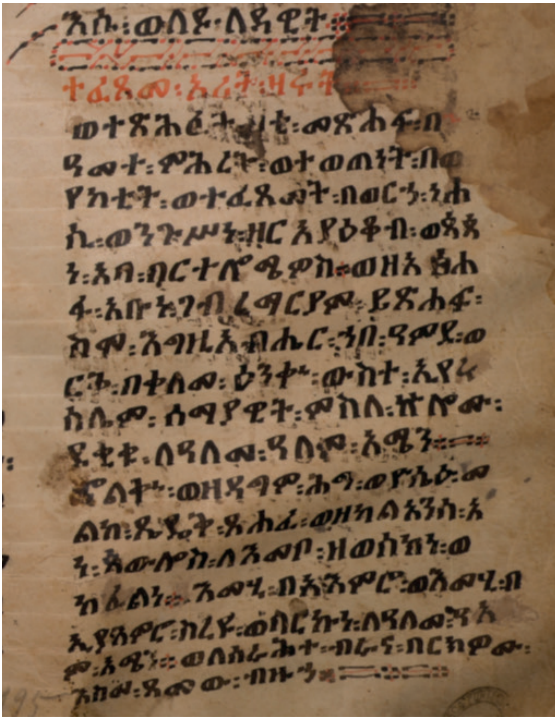 እሱ፡ ወለዶ፡ ለዳዊት፡
ተፈጸመ፡ ኦሪት፡ ዛሩት
ወተጽሕፈት፡ ዛቲ፡ መጽሐፍ፡ በ
ዓመተ፡ ምሕረት፡ ወተወጠነት፡ በወ
የካቲት፡ ወተፈጸመት፡ በወርኃ፡ ነሐ
ሴ፡ ወንጉሥነ፡ ዘርአ ያዕቆብ፡ ወጳጳ
ስነ፡ አባ፡ በርተሎሜዎስ፡ ወዘአጽሐ
ፋ፡ አቡነ፡ ገብረ ማርያም፡ ይጽሐፍ፡
ስሞ፡ እግዚአብሔር፡ ኀበ፡ ዓምደ፡ ወ
ርቅ፡ በቀለመ፡ ዕንቍ፡ ውስተ፡ ኢየሩ
ሳሌም፡ ሰማያዊት፡ ምስለ፡ ኵሎሙ፡
ደቂቁ፡ ለዓለመ፡ ዓለም፡ አሜን፡
ወዘዳግም፡ ሕግ፡
ጸሐፈ፡
ን፡ ጳውሎስ፡ ለእመቦ፡ ዘወሰክነ፡ ወ
እመሂ፡ በአእምሮ፡ ወእመሂ፡ በ
ኢያእምሮ፡ ስረዩ፡ ወባርኩነ፡ ለዓለመ፡ ዓለ
ም፡ አሜን፡ ወለሰራሕተ፡ ብራና፡ በርክዎሙ፡
እስመ፡ ጻመው፡ ብዙኃ፡
195